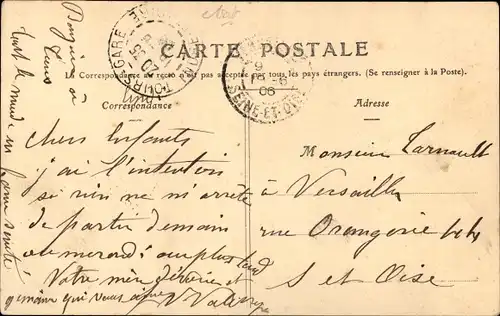 CARTE POSTALE
La Correspondance au recto n'est pas acceptée par tous les pays étrangers. (Se renseigner à la Poste.)
Correspondance
Adresse
TOURS GARE
SEINE-ET-OISE
Chers Enfants
j'ai l'intention
si rien ne m'arrête
de partir demain
ou mercredi au plus tard
Votre mère
qui vous aime
Bonjour à
tous
tout le monde en bonne santé
Monsieur Larnault
à Versailles
rue Orangerie
S et Oise